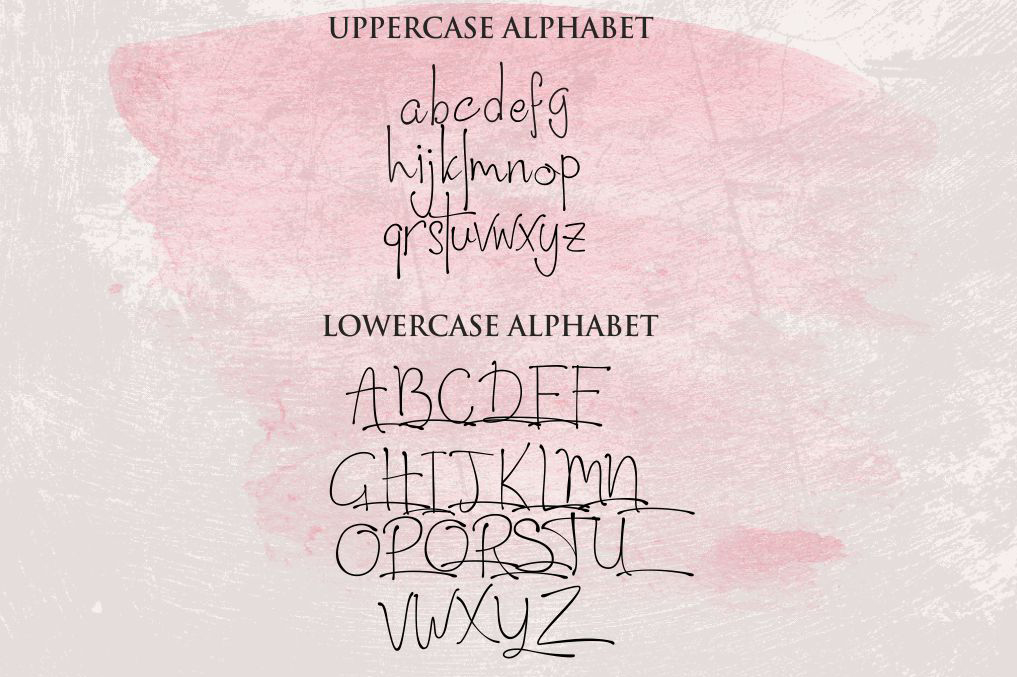 UPPERCASE ALPHABET
abcdefg
hijklmnop
qrstuvwxyz
LOWERCASE ALPHABET
ABCDEF
GHIJKLMN
OPQRSTU
VWXYZ